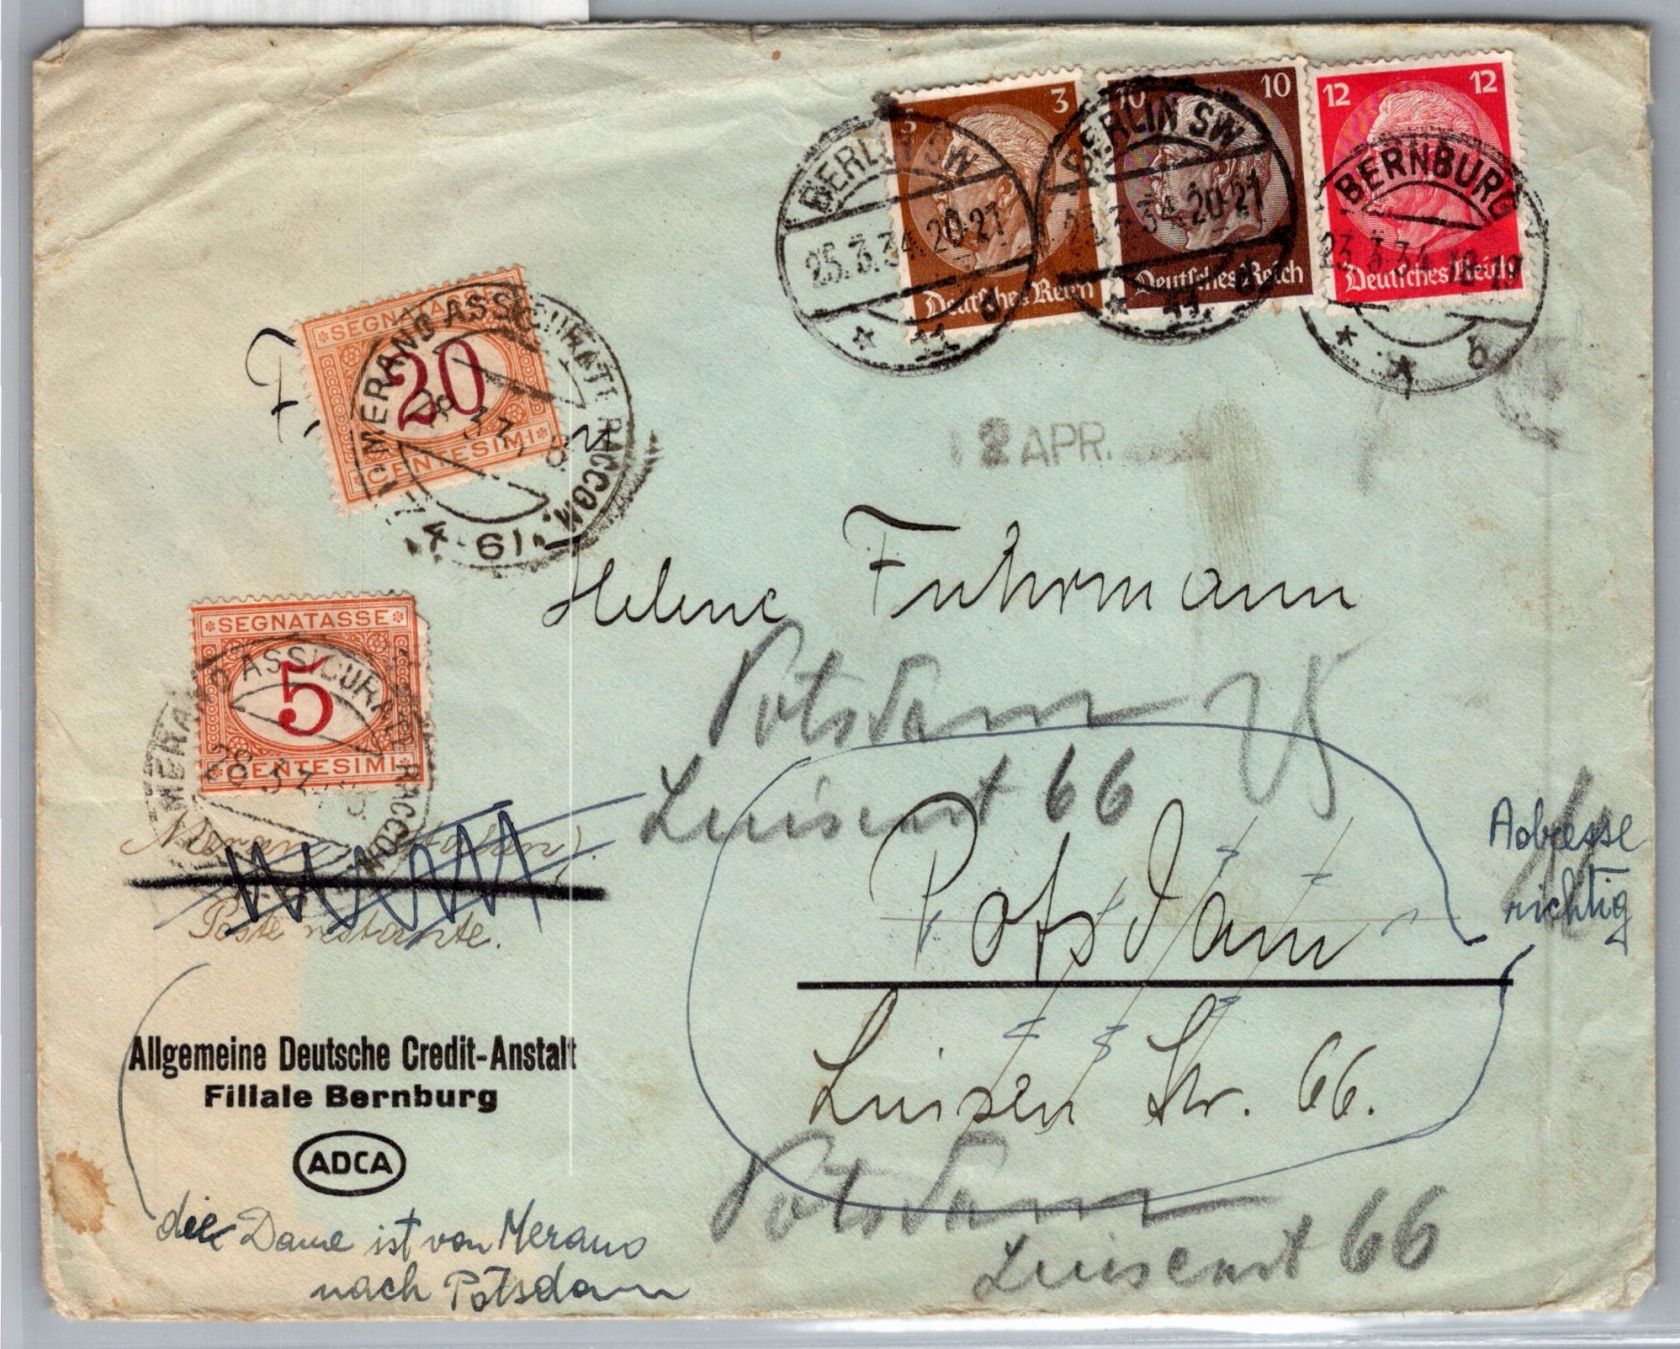 3
10 10
12 12
Deutsches Reich
Deutsches Reich
Deutsches Reich
BERLIN SW
25.3.34.20-21
* 11
BERLIN SW
25.3.34.20-21
* 11
BERNBURG
23.3.34.18-19
* * b
SEGNATASSE
20
CENTESIMI
MERANO ASSICURATE RACCOM.
28 3
2 APR.
Helene Fuhrmann
SEGNATASSE
5
CENTESIMI
MERANO ASSICURATE RACCOM
28 3
Potsdam
Luisenst 66
Meran (Italien).
Poste restante.
Potsdam
Luisen Str. 66.
Adresse
richtig
Allgemeine Deutsche Credit-Anstalt
Filiale Bernburg
ADCA
die Dame ist von Merano
nach Potsdam
Potsdam
Luisenst 66